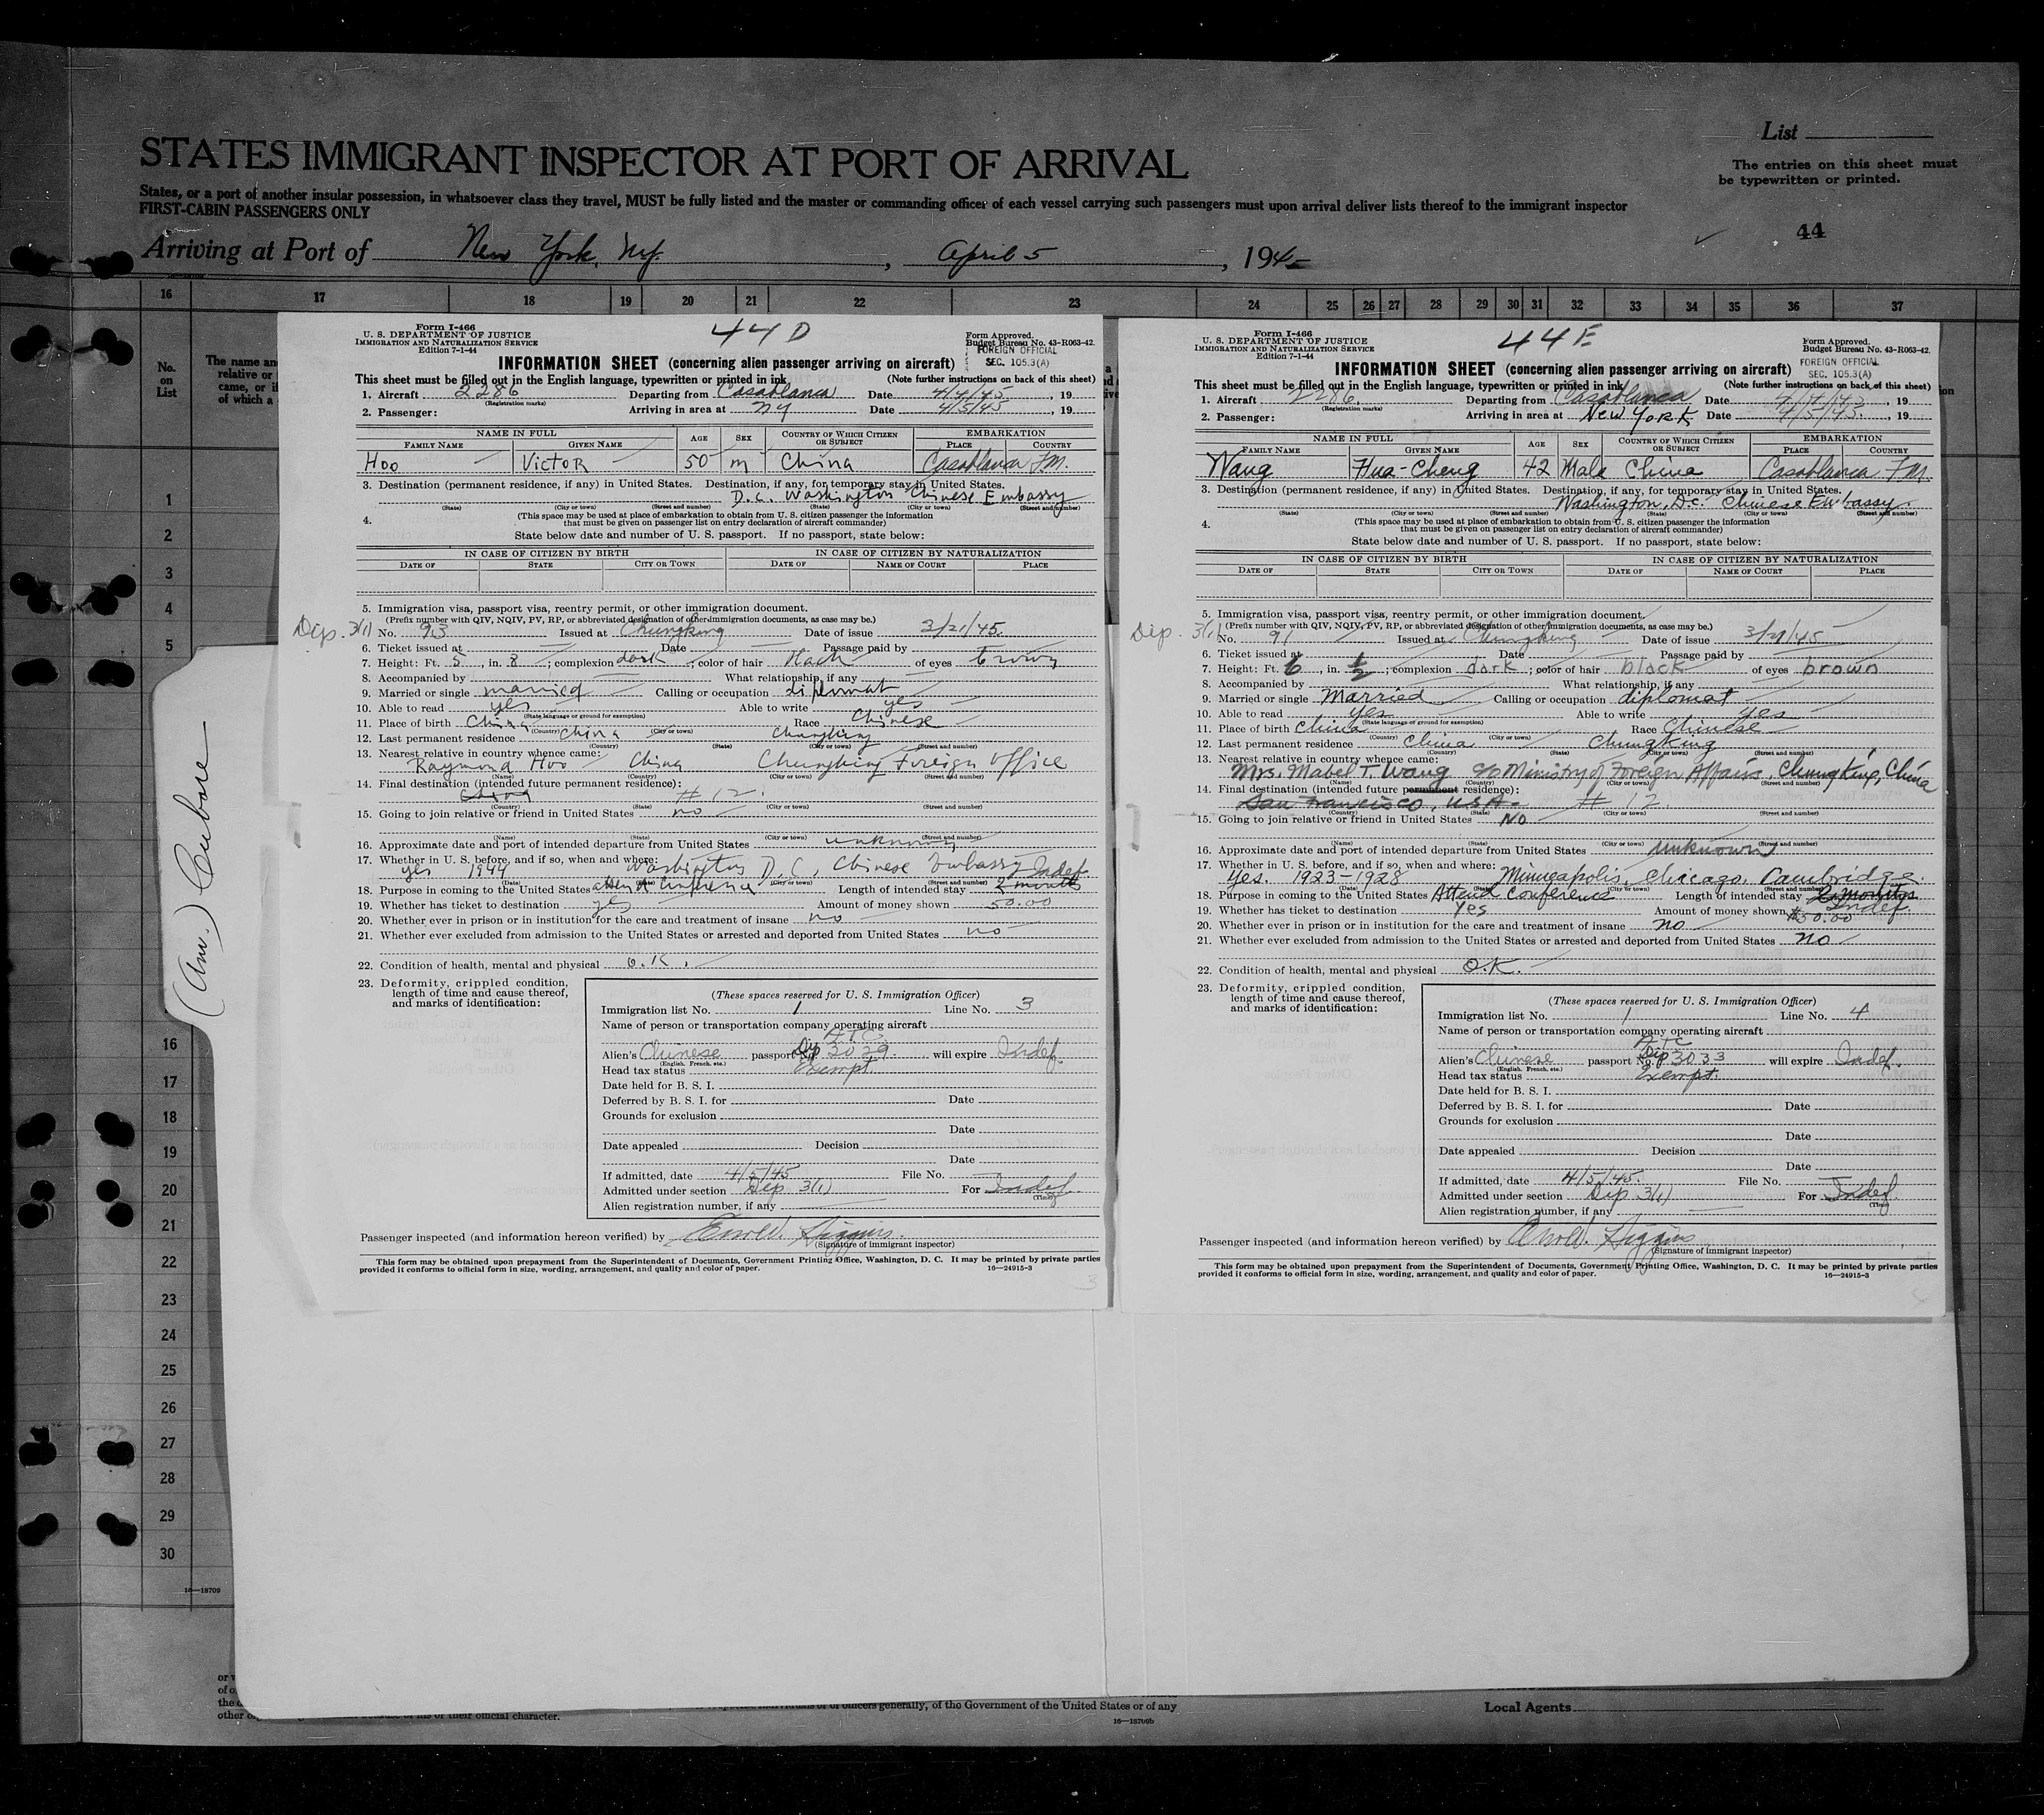 List
STATES IMMIGRANT INSPECTOR AT PORT OF ARRIVAL
The entries on this sheet must
be typewritten or printed.
States, or a port of another insular possession, in whatsoever class they travel, MUST be fully listed and the master or commanding officer of each vessel carrying such passengers must upon arrival deliver lists thereof to the immigrant inspector
FIRST-CABIN PASSENGERS ONLY
44
Arriving at Port of New York, NY, April 5, 1945
16 17 18 19 20 21 22 23 24 25 26 27 28 29 30 31 32 33 34 35 36 37
No.
on
List
The name an
relative or
came, or i
of which a
1
2
3
4
5
16
17
18
19
20
21
22
23
24
25
26
27
28
29
30
16—18709
(Am.) Cubase
44 D
Form I-466
U. S. DEPARTMENT OF JUSTICE
IMMIGRATION AND NATURALIZATION SERVICE
Edition 7-1-44
Form Approved.
Budget Bureau No. 43-R063-42.
FOREIGN OFFICIAL
SEC. 105.3(A)
INFORMATION SHEET (concerning alien passenger arriving on aircraft)
This sheet must be filled out in the English language, typewritten or printed in ink. (Note further instructions on back of this sheet)
1. Aircraft 2286 Departing from Casablanca Date 4/4/45, 19
(Registration marks)
2. Passenger: Arriving in area at NY Date 4/5/45, 19
NAME IN FULL AGE SEX COUNTRY OF WHICH CITIZEN OR SUBJECT EMBARKATION
FAMILY NAME GIVEN NAME PLACE COUNTRY
Hoo Victor 50 m China Casablanca F.M.
3. Destination (permanent residence, if any) in United States. Destination, if any, for temporary stay in United States.
D.C. Washington Chinese Embassy
(State) (City or town) (Street and number) (State) (City or town) (Street and number)
4. (This space may be used at place of embarkation to obtain from U. S. citizen passenger the information
that must be given on passenger list on entry declaration of aircraft commander)
State below date and number of U. S. passport. If no passport, state below:
IN CASE OF CITIZEN BY BIRTH IN CASE OF CITIZEN BY NATURALIZATION
DATE OF STATE CITY OR TOWN DATE OF NAME OF COURT PLACE
5. Immigration visa, passport visa, reentry permit, or other immigration document.
(Prefix number with QIV, NQIV, PV, RP, or abbreviated designation of other immigration documents, as case may be.)
Dip. 3(1) No. 93 Issued at Chungking Date of issue 3/21/45
6. Ticket issued at Date Passage paid by
7. Height: Ft. 5, in. 8; complexion dark; color of hair black of eyes brown
8. Accompanied by What relationship, if any
9. Married or single married Calling or occupation diplomat
10. Able to read yes Able to write yes
(State language or ground for exemption)
11. Place of birth China Race Chinese
12. Last permanent residence China Chungking
(Country) (City or town) (State) (City or town) (Street and number)
13. Nearest relative in country whence came:
Raymond Hoo China Chungking Foreign Office
(Name) (Country) (City or town) (Street and number)
14. Final destination (intended future permanent residence):
China # 12
(Country) (State) (City or town) (Street and number)
15. Going to join relative or friend in United States no
(Name) (State) (City or town) (Street and number)
16. Approximate date and port of intended departure from United States unknown
17. Whether in U. S. before, and if so, when and where:
yes 1944 Washington D.C., Chinese Embassy Indef
(Date) (State) (City or town) (Street and number)
18. Purpose in coming to the United States attend conference Length of intended stay 2 months
19. Whether has ticket to destination yes Amount of money shown 50.00
20. Whether ever in prison or in institution for the care and treatment of insane no
21. Whether ever excluded from admission to the United States or arrested and deported from United States no
22. Condition of health, mental and physical O.K.
23. Deformity, crippled condition,
length of time and cause thereof,
and marks of identification:
(These spaces reserved for U. S. Immigration Officer)
Immigration list No. 1 Line No. 3
Name of person or transportation company operating aircraft
ATC
Alien's Chinese passport No. Dip 3029 will expire Indef.
(English, French, etc.)
Head tax status Exempt.
Date held for B. S. I.
Deferred by B. S. I. for Date
Grounds for exclusion
Date
Date appealed Decision
Date
If admitted, date 4/5/45 File No.
Admitted under section Dip. 3(1) For Indef.
(Time)
Alien registration number, if any
Passenger inspected (and information hereon verified) by Higgins.
(Signature of immigrant inspector)
This form may be obtained upon prepayment from the Superintendent of Documents, Government Printing Office, Washington, D. C. It may be printed by private parties
provided it conforms to official form in size, wording, arrangement, and quality and color of paper. 16—24915-3
3
44 E
Form I-466
U. S. DEPARTMENT OF JUSTICE
IMMIGRATION AND NATURALIZATION SERVICE
Edition 7-1-44
Form Approved.
Budget Bureau No. 43-R063-42.
FOREIGN OFFICIAL
SEC. 105.3(A)
INFORMATION SHEET (concerning alien passenger arriving on aircraft)
This sheet must be filled out in the English language, typewritten or printed in ink. (Note further instructions on back of this sheet)
1. Aircraft 2286. Departing from Casablanca Date 4/4/45, 19
(Registration marks)
2. Passenger: Arriving in area at New York Date 4/5/45, 19
NAME IN FULL AGE SEX COUNTRY OF WHICH CITIZEN OR SUBJECT EMBARKATION
FAMILY NAME GIVEN NAME PLACE COUNTRY
Wang Hua-Cheng 42 Male China Casablanca F.M.
3. Destination (permanent residence, if any) in United States. Destination, if any, for temporary stay in United States.
Washington, D.C. Chinese Embassy
(State) (City or town) (Street and number) (State) (City or town) (Street and number)
4. (This space may be used at place of embarkation to obtain from U. S. citizen passenger the information
that must be given on passenger list on entry declaration of aircraft commander)
State below date and number of U. S. passport. If no passport, state below:
IN CASE OF CITIZEN BY BIRTH IN CASE OF CITIZEN BY NATURALIZATION
DATE OF STATE CITY OR TOWN DATE OF NAME OF COURT PLACE
5. Immigration visa, passport visa, reentry permit, or other immigration document.
(Prefix number with QIV, NQIV, PV, RP, or abbreviated designation of other immigration documents, as case may be.)
Dip. 3(1) No. 91 Issued at Chungking Date of issue 3/21/45
6. Ticket issued at Date Passage paid by
7. Height: Ft. 6, in. 1/2; complexion dark; color of hair black of eyes brown
8. Accompanied by What relationship, if any
9. Married or single Married Calling or occupation diplomat
10. Able to read yes Able to write yes
(State language or ground for exemption)
11. Place of birth China Race Chinese
12. Last permanent residence China Chungking
(Country) (City or town) (State) (City or town) (Street and number)
13. Nearest relative in country whence came:
Mrs. Mabel T. Wang c/o Ministry of Foreign Affairs, Chungking, China
(Name) (Country) (City or town) (Street and number)
14. Final destination (intended future permanent residence):
San Francisco, U.S.A. # 12
(Country) (State) (City or town) (Street and number)
15. Going to join relative or friend in United States No
(Name) (State) (City or town) (Street and number)
16. Approximate date and port of intended departure from United States unknown
17. Whether in U. S. before, and if so, when and where:
Yes. 1923-1928 Minneapolis, Chicago, Cambridge.
(Date) (State) (City or town) (Street and number)
18. Purpose in coming to the United States Attend Conference Length of intended stay 2 months
Indef
19. Whether has ticket to destination Yes Amount of money shown $50.00
20. Whether ever in prison or in institution for the care and treatment of insane no
21. Whether ever excluded from admission to the United States or arrested and deported from United States no
22. Condition of health, mental and physical O.K.
23. Deformity, crippled condition,
length of time and cause thereof,
and marks of identification:
(These spaces reserved for U. S. Immigration Officer)
Immigration list No. 1 Line No. 4
Name of person or transportation company operating aircraft
ATC
Alien's Chinese passport No. Dip 3033 will expire Indef.
(English, French, etc.)
Head tax status Exempt.
Date held for B. S. I.
Deferred by B. S. I. for Date
Grounds for exclusion
Date
Date appealed Decision
Date
If admitted, date 4/5/45. File No.
Admitted under section Dip 3(1) For Indef.
(Time)
Alien registration number, if any
Passenger inspected (and information hereon verified) by Higgins
(Signature of immigrant inspector)
This form may be obtained upon prepayment from the Superintendent of Documents, Government Printing Office, Washington, D. C. It may be printed by private parties
provided it conforms to official form in size, wording, arrangement, and quality and color of paper. 16—24915-3
officers generally, of the Government of the United States or of any
other official character.
16—18709b
Local Agents